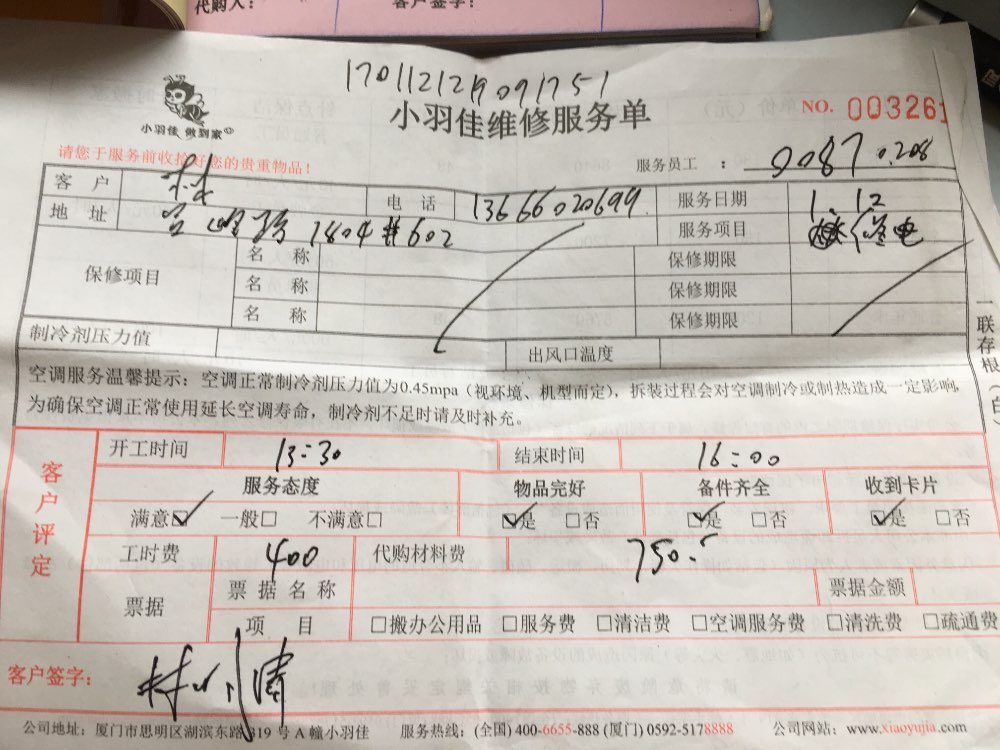 代购人:
客户签字:
1701121219091751
小羽佳 做到家
小羽佳维修服务单
NO. 003261
请您于服务前收捡好您的贵重物品!
服务员工 : 9087 0.208
客 户 林 电 话 13666020699 服务日期 1.12
地 址 1804#602 服务项目 修电
保修项目 名 称 保修期限
名 称 保修期限
名 称 保修期限
制冷剂压力值 出风口温度
空调服务温馨提示:空调正常制冷剂压力值为0.45mpa(视环境、机型而定),拆装过程会对空调制冷或制热造成一定影响,
为确保空调正常使用延长空调寿命,制冷剂不足时请及时补充。
一联存根(白)
客户评定
开工时间 13:30 结束时间 16:00
服务态度 物品完好 备件齐全 收到卡片
满意☑ 一般□ 不满意□ ☑是 □否 ☑是 □否 ☑是 □否
工时费 400 代购材料费 750.5
票据 票 据 名 称 票据金额
项 目 □搬办公用品 □服务费 □清洁费 □空调服务费 □清洗费 □疏通费
客户签字:
公司地址:厦门市思明区湖滨东路319号A幢小羽佳 服务热线:(全国) 400-6655-888 (厦门) 0592-5178888 公司网站:www.xiaoyujia.com